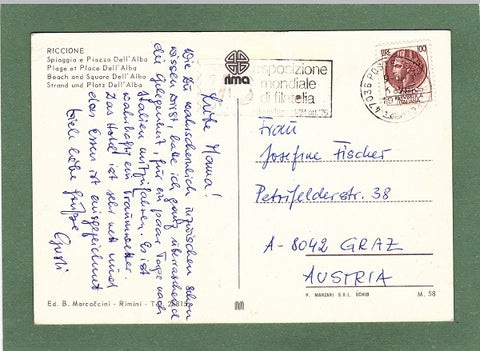 RICCIONE
Spiaggia e Piazza Dell'Alba
Plage et Place Dell'Alba
Beach and Square Dell'Alba
Strand und Platz Dell'Alba
rima
esposizione
mondiale
di filatelia
LIRE 100
47036
Liebe Mama!
Wie Du wahrscheinlich inzwischen schon
wissen wirst, habe ich ganz überraschend
die Gelegenheit, für ein paar Tage nach
Italien mitzufahren. Es ist
wahnsinnig ein Traumwetter.
Das Hotel ist sehr nett und
das Essen ist ausgezeichnet
Viele liebe Grüße
Gusti
Frau
Josefine Fischer
Petrifelderstr. 38
A-8042 GRAZ
AUSTRIA
Ed. B. Marcaccini - Rimini
P. MARZARI S.R.L. SCHIO
M. 58